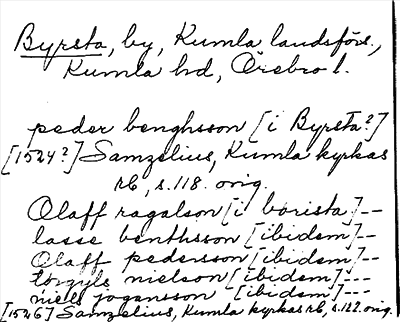 Byrsta, by, Kumla landsförs.,
Kumla hd, Örebro l.
peder benghsson [i Byrsta?]
[1524?] Samzelius, Kumla kyrkas
rb, s. 118. orig.
Olaff ragalson [i borista]--
lasse benthsson [ibidem]--
Olaff pedersson [ibidem]--
torgyls nielson [ibidem]---
niels jogansson [ibidem]---
[1526] Samzelius, Kumla kyrkas rb, s. 122. orig.